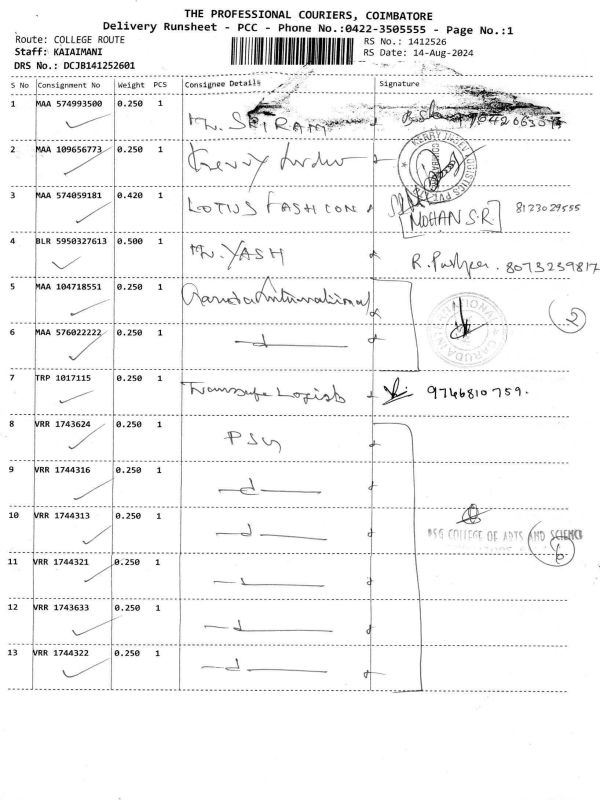 THE PROFESSIONAL COURIERS, COIMBATORE
Delivery Runsheet - PCC - Phone No.:0422-3505555 - Page No.:1
Route: COLLEGE ROUTE RS No.: 1412526
Staff: KAIAIMANI RS Date: 14-Aug-2024
DRS No.: DCJB141252601
S No Consignment No Weight PCS Consignee Details Signature
1 MAA 574993500 0.250 1 SRIRAM
2 MAA 109656773 0.250 1
3 MAA 574059181 0.420 1 LOTUS FASHION MOHAN S.R 8123029555
4 BLR 5950327613 0.500 1 YASH R. 8073239817
5 MAA 104718551 0.250 1 Garuda International
2
6 MAA 576022222 0.250 1 d
7 TRP 1017115 0.250 1 9746810759.
8 VRR 1743624 0.250 1 PSG
9 VRR 1744316 0.250 1 d
10 VRR 1744313 0.250 1 d
PSG COLLEGE OF ARTS AND SCIENCE
6
11 VRR 1744321 0.250 1 d
12 VRR 1743633 0.250 1 d
13 VRR 1744322 0.250 1 d